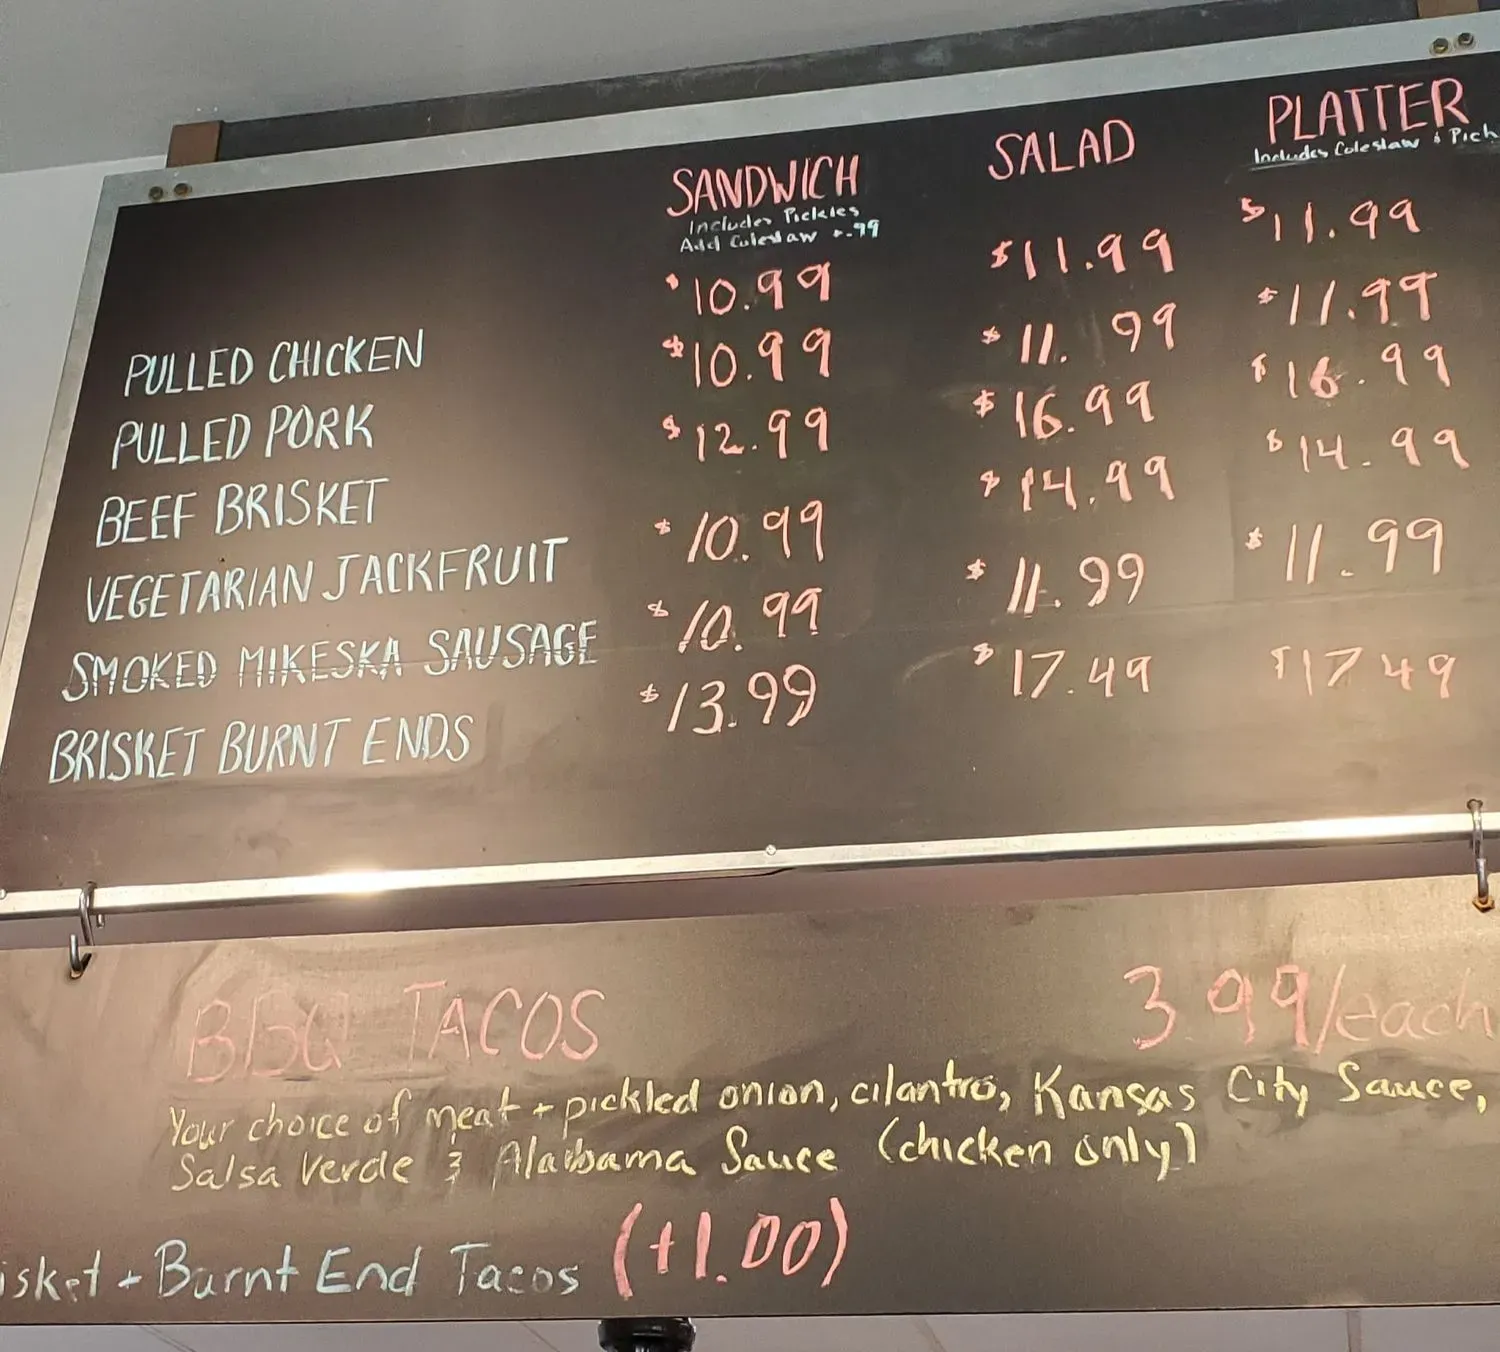 SANDWICH SALAD PLATTER
Includes Pickles Includes Coleslaw & Pick
Add Coleslaw +.99
PULLED CHICKEN $10.99 $11.99 $11.99
PULLED PORK $10.99 $11.99 $11.99
BEEF BRISKET $12.99 $16.99 $16.99
VEGETARIAN JACKFRUIT $10.99 $14.99 $14.99
SMOKED MIKESKA SAUSAGE $10.99 $11.99 $11.99
BRISKET BURNT ENDS $13.99 $17.49 $17.49
BBQ TACOS 3.99/each
Your choice of meat + pickled onion, cilantro, Kansas City Sauce,
Salsa Verde & Alabama Sauce (chicken only)
isket + Burnt End Tacos (+1.00)